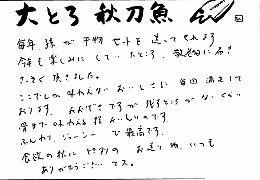 大とろ 秋刀魚
毎年、孫が干物セットを送ってくれます
今年も楽しみにしていたところ、
さっそく頂きました。
ここでしか味わえないおいしさに毎回満足して
おります。
骨まで味わえる程おいしいのです。
ふんわり、ジューシーで最高です。
食欲の秋にピッタリのお送り物、いつも
ありがとうございてス。